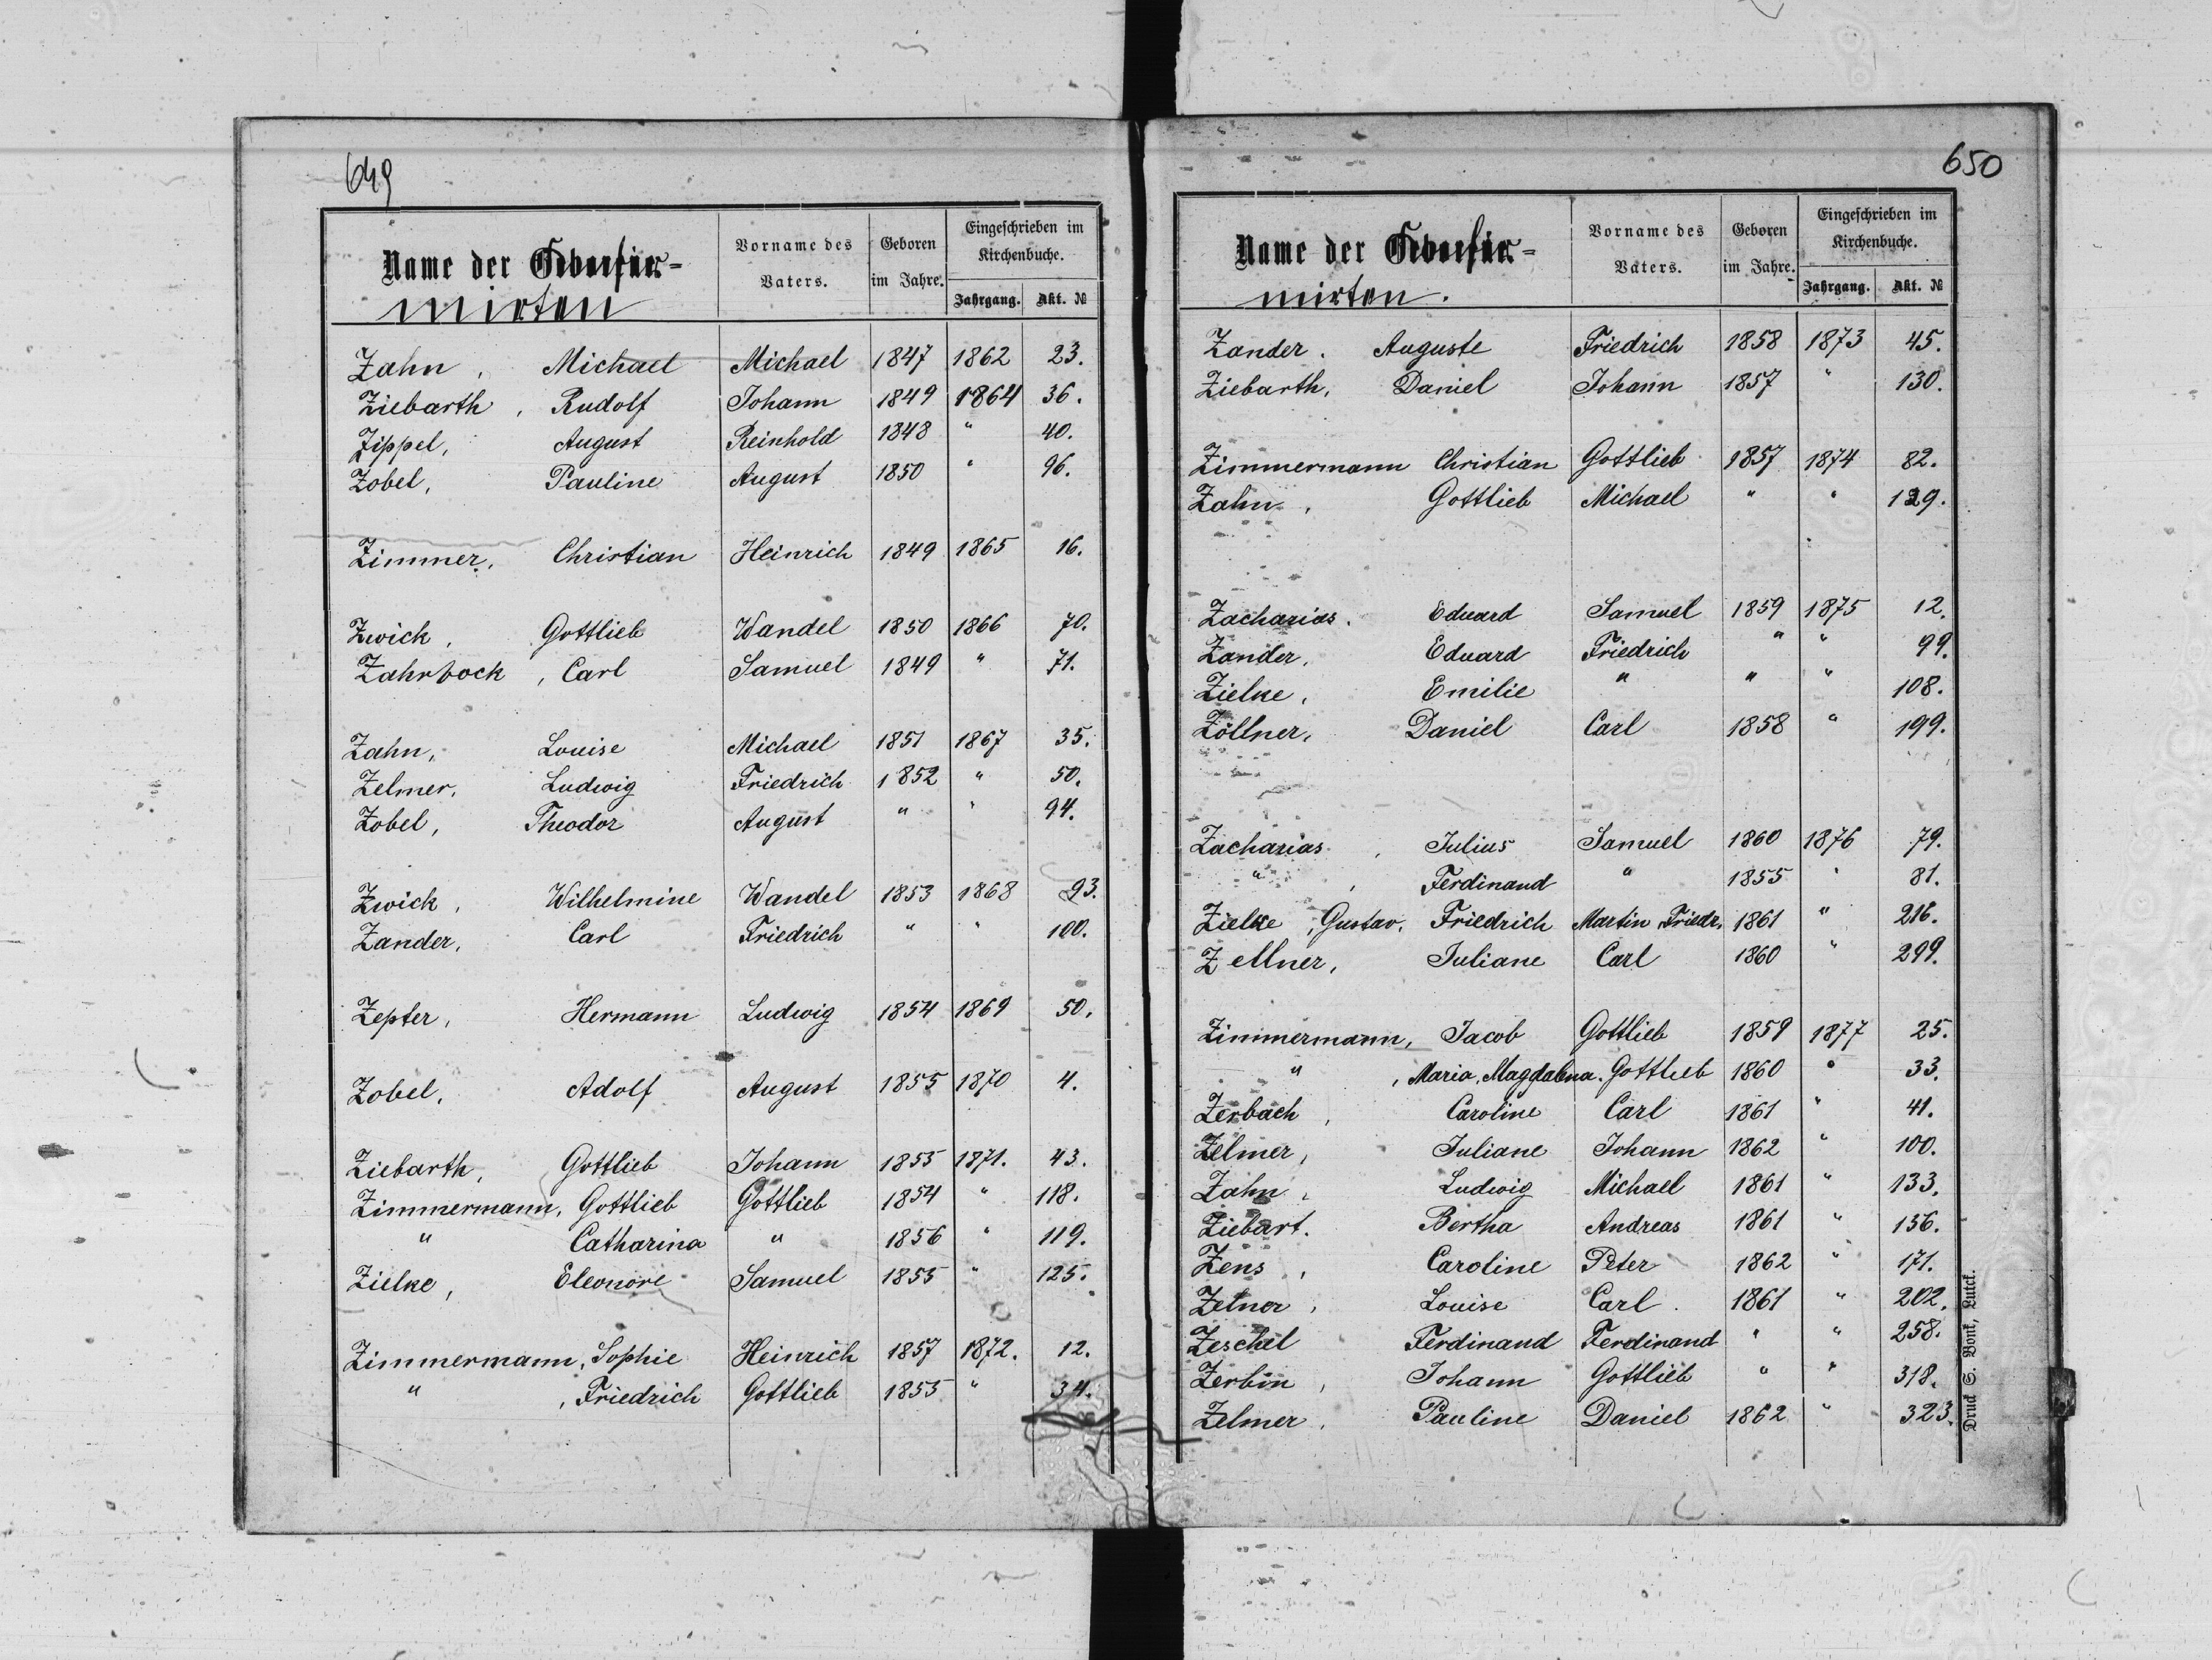 649
Name der Geborfür-
mirten
Vorname des Vaters.
Geboren im Jahre.
Eingeschrieben im Kirchenbuche.
Jahrgang. Akt. №
Zahn, Michael Michael 1847 1862 23.
Ziebarth, Rudolf Johann 1849 1864 36.
Zippel, August Reinhold 1848 " 40.
Zobel, Pauline August 1850 " 96.
Zimmer, Christian Heinrich 1849 1865 16.
Zwick, Gottlieb Wandel 1850 1866 70.
Zahrbock, Carl Samuel 1849 " 71.
Zahn, Louise Michael 1851 1867 35.
Zelmer, Ludwig Friedrich 1852 " 50.
Zobel, Theodor August " " 94.
Zwick, Wilhelmine Wandel 1853 1868 93.
Zander, Carl Friedrich " " 100.
Zepter, Hermann Ludwig 1854 1869 50.
Zobel, Adolf August 1855 1870 4.
Ziebarth, Gottlieb Johann 1855 1871. 43.
Zimmermann, Gottlieb Gottlieb 1854 " 118.
" Catharina " 1856 " 119.
Zielke, Eleonore Samuel 1855 " 125.
Zimmermann, Sophie Heinrich 1857 1872. 12.
", Friedrich Gottlieb 1855 " 34.
650
Name der Geborfür-
mirten.
Vorname des Vaters.
Geboren im Jahre.
Eingeschrieben im Kirchenbuche.
Jahrgang. Akt. №
Zander. Auguste Friedrich 1858 1873 45.
Ziebarth, Daniel Johann 1857 " 130.
Zimmermann Christian Gottlieb 1857 1874 82.
Zahn, Gottlieb Michael " " 129.
Zacharias. Eduard Samuel 1859 1875 12.
Zander, Eduard Friedrich " " 99.
Zielke, Emilie " " " 108.
Zöllner, Daniel Carl 1858 " 199.
Zacharias, Julius Samuel 1860 1876 79.
", Ferdinand " 1855 " 81.
Zielke, Gustav, Friedrich Martin Friedr. 1861 " 216.
Zellner, Juliane Carl 1860 " 299.
Zimmermann, Jacob Gottlieb 1859 1877 25.
", Maria, Magdalena. Gottlieb 1860 " 33.
Zerbach, Caroline Carl 1861 " 41.
Zelmer, Juliane Johann 1862 " 100.
Zahn, Ludwig Michael 1861 " 133.
Ziebart. Bertha Andreas 1861 " 156.
Zens, Caroline Peter 1862 " 171.
Zelner, Louise Carl. 1861 " 202.
Zeschel Ferdinand Ferdinand " " 258.
Zerbin, Johann Gottlieb " " 318.
Zelmer, Pauline Daniel 1862 " 323.
Druck S. Bonk, Luck.